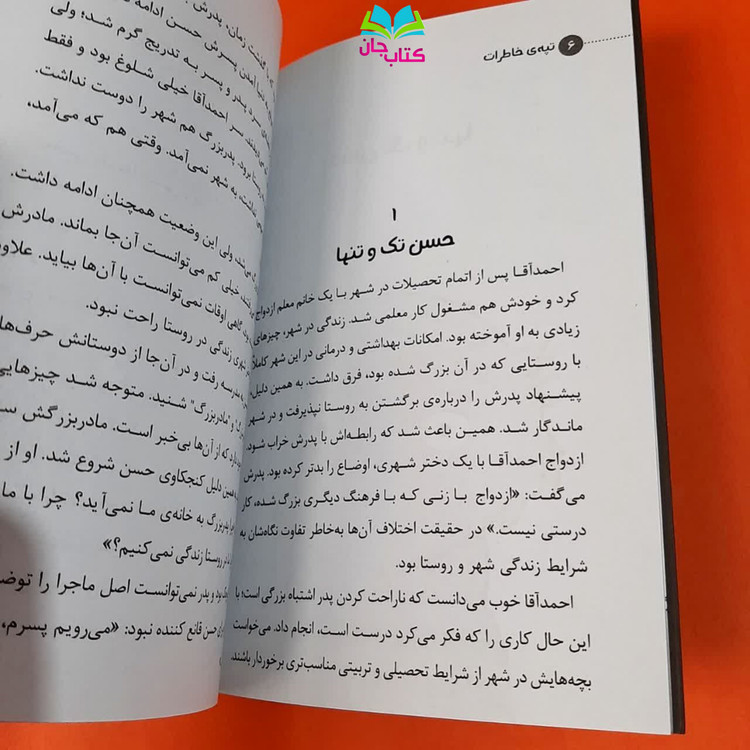 کتاب جان
۶ تپه‌ی خاطرات
۱
حسن تک و تنها
احمدآقا پس از اتمام تحصیلات در شهر با یک خانم معلم ازدواج
کرد و خودش هم مشغول کار معلمی شد. زندگی در شهر، چیزهای
زیادی به او آموخته بود. امکانات بهداشتی و درمانی در این شهر کاملاً
با روستایی که در آن بزرگ شده بود، فرق داشت. به همین دلیل،
پیشنهاد پدرش را درباره‌ی برگشتن به روستا نپذیرفت و در شهر
ماندگار شد. همین باعث شد که رابطه‌اش با پدرش خراب شود.
ازدواج احمدآقا با یک دختر شهری، اوضاع را بدتر کرده بود. پدرش
می‌گفت: «ازدواج با زنی که با فرهنگ دیگری بزرگ شده، کار
درستی نیست.» در حقیقت اختلاف آن‌ها به‌خاطر تفاوت نگاه‌شان به
شرایط زندگی شهر و روستا بود.
احمدآقا خوب می‌دانست که ناراحت کردن پدر اشتباه بزرگی است؛ با
این حال کاری را که فکر می‌کرد درست است، انجام داد. می‌خواست
بچه‌هایش در شهر از شرایط تحصیلی و تربیتی مناسب‌تری برخوردار باشند.
گذشت زمان، پدرش
آمدن پسرش حسن ادامه
سرد پدر و پسر به تدریج گرم شد؛ ولی
سر احمدآقا خیلی شلوغ بود و فقط
روستا برود. پدربزرگ هم شهر را دوست نداشت.
به شهر نمی‌آمد. وقتی هم که می‌آمد،
ولی این وضعیت همچنان ادامه داشت.
خیلی کم می‌توانست آن‌جا بماند. مادرش
گاهی اوقات نمی‌توانست با آن‌ها بیاید. علاوه
زندگی در روستا راحت نبود.
مدرسه رفت و در آن‌جا از دوستانش حرف‌ها
و "مادربزرگ" شنید. متوجه شد چیزهایی
که از آن‌ها بی‌خبر است. مادربزرگش
همین دلیل کنجکاوی حسن شروع شد. او از
پدربزرگ به خانه‌ی ما نمی‌آید؟ چرا با ما
در روستا زندگی نمی‌کنیم؟»
بود و پدر نمی‌توانست اصل ماجرا را
حسن قانع کننده نبود: «می‌رویم پسرم،